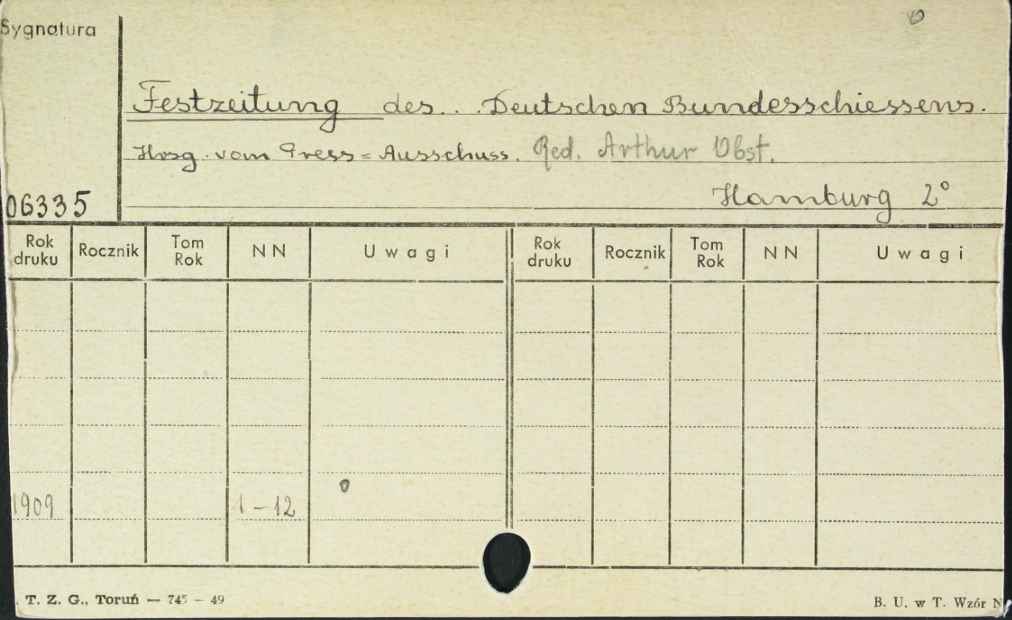 Sygnatura
Festzeitung des .. Deutschen Bundesschiessens.
Hrsg. vom Press=Ausschuss. Red. Arthur Obst.
06335
Hamburg 2°
Rok druku Rocznik Tom Rok NN Uwagi Rok druku Rocznik Tom Rok NN Uwagi
1909 1-12
T. Z. G., Toruń — 745 - 49 B. U. w T. Wzór N